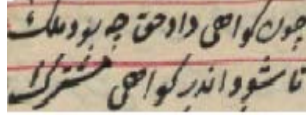 چون کواهی داد حق چه بود ملک
تا شود اندر کواهی مشترک